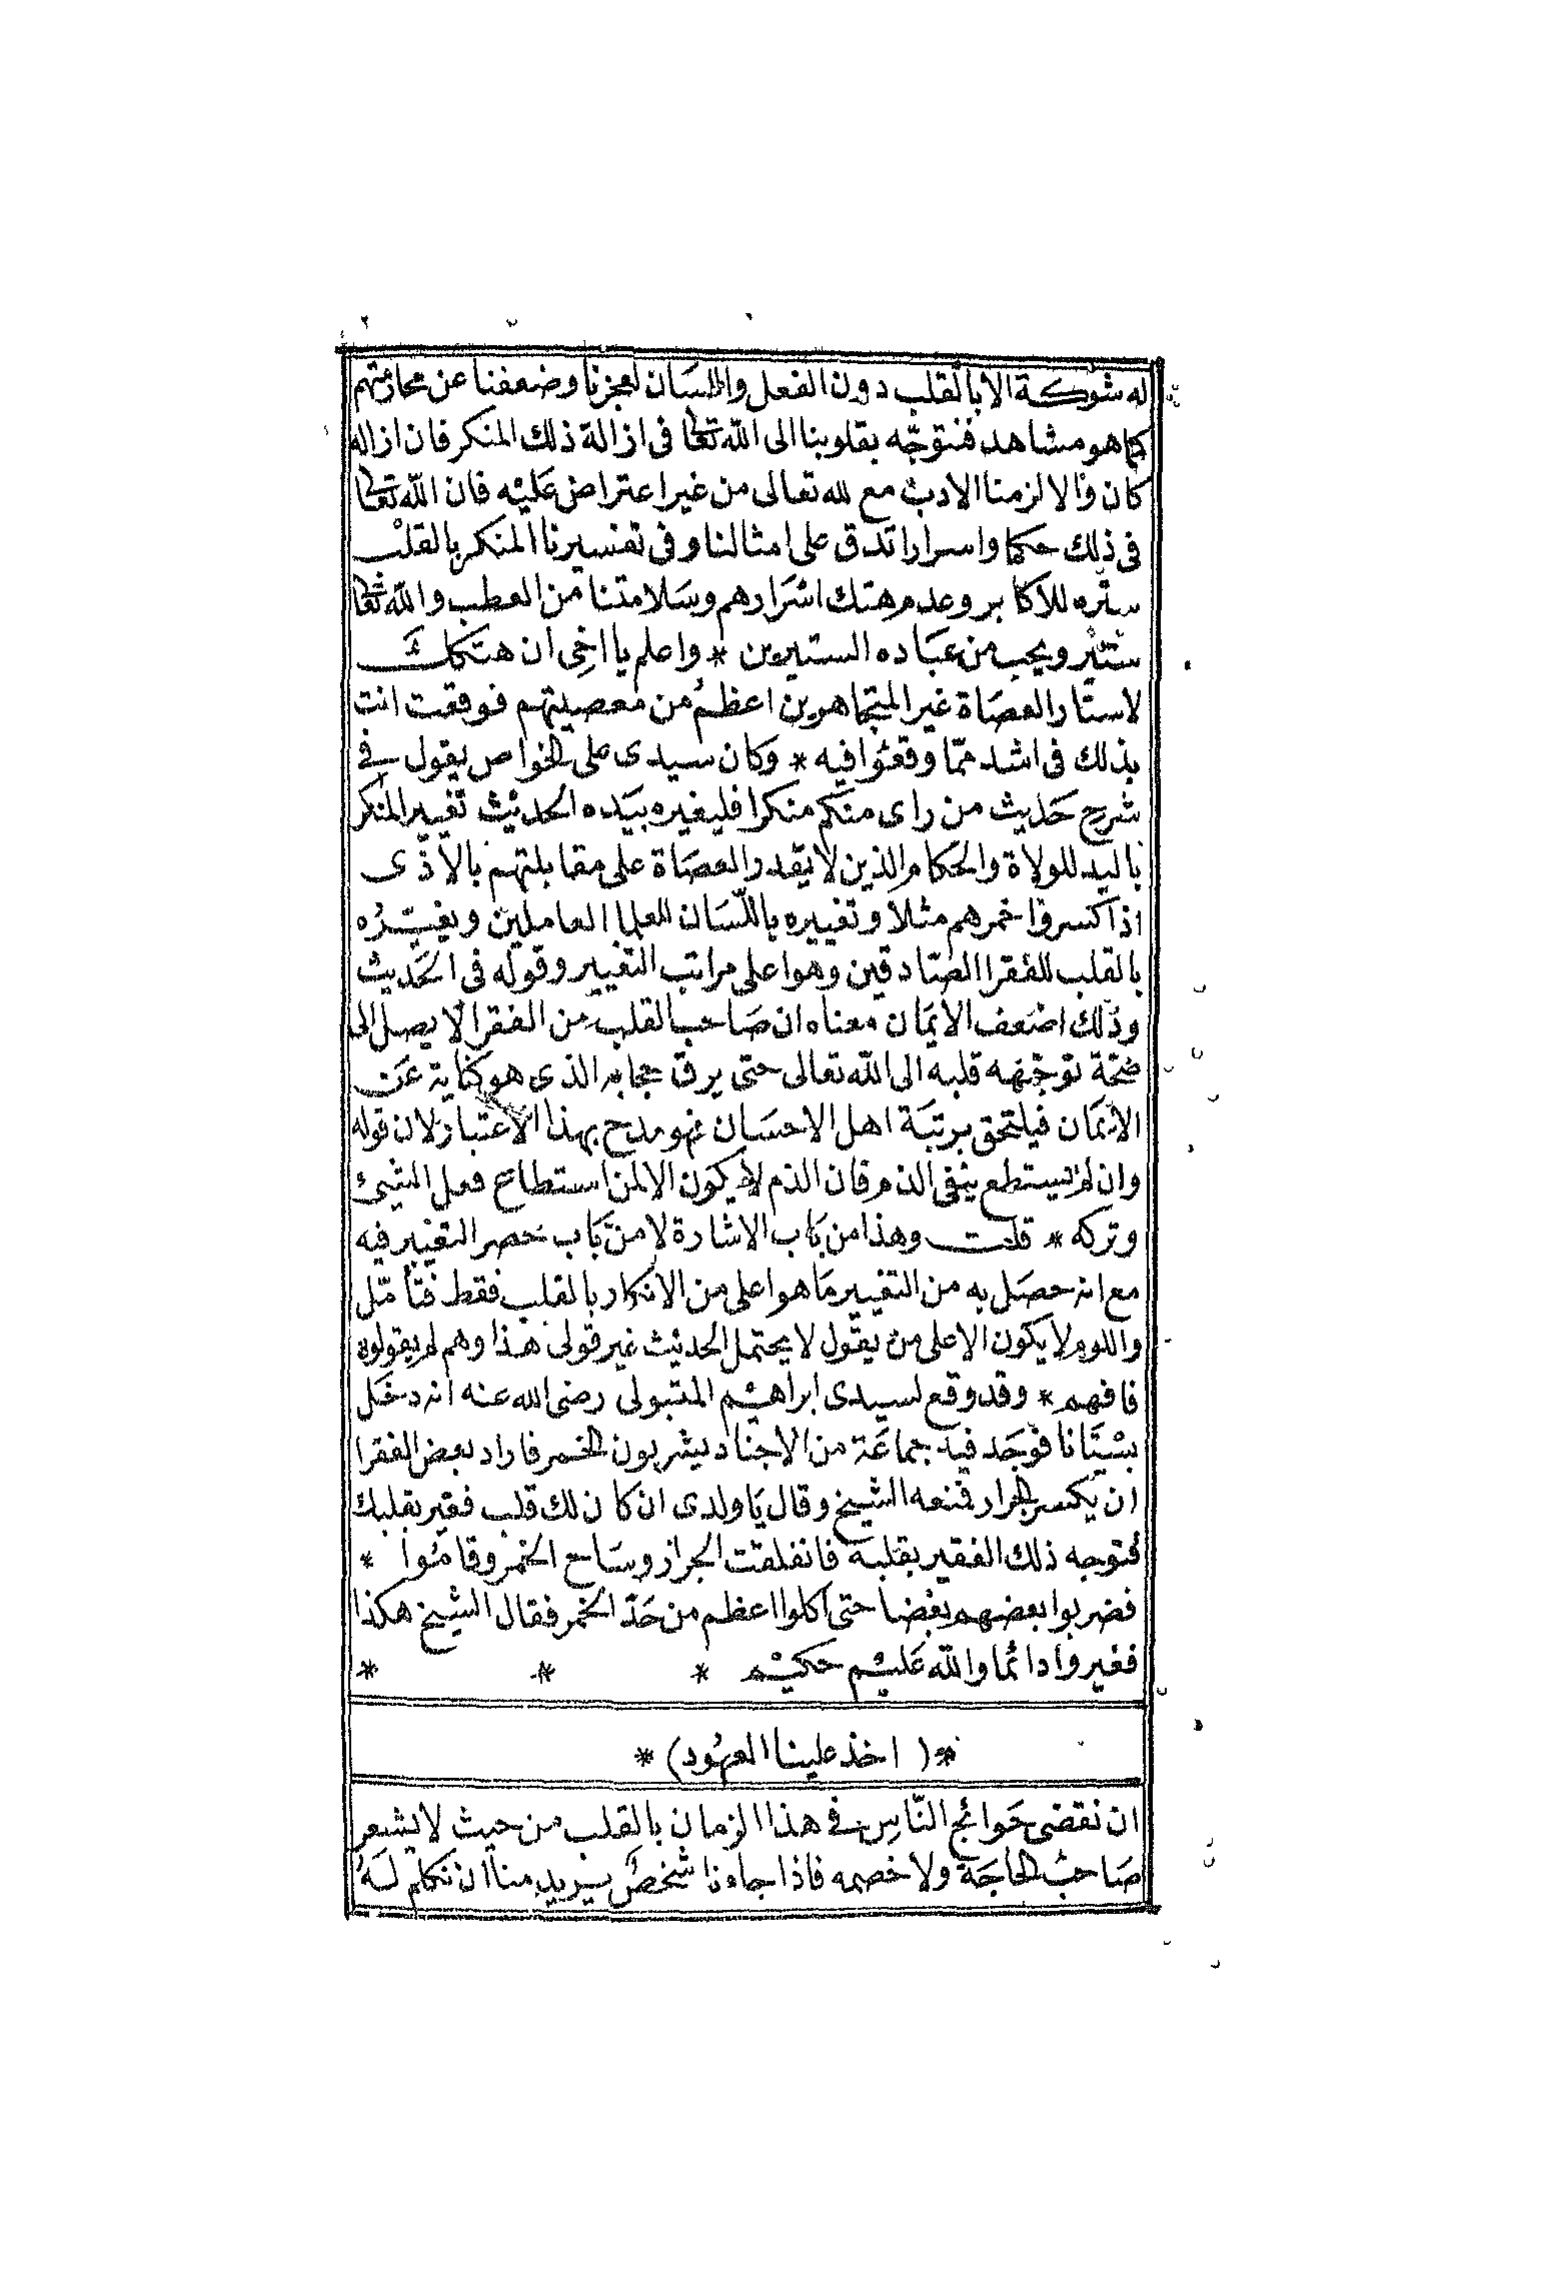 له شوكة الا بالقلب دون الفعل واللسان لعجزنا وضعفنا عن محاربتهم
كما هو مشاهد فنتوجّه بقلوبنا الى الله تعالى فى ازالة ذلك المنكر فان ازاله
كان والا لزمنا الادب مع لله تعالى من غير اعتراض عليه فان الله تعالى
فى ذلك حكما واسرارا تدق على امثالنا وفى تفسيرنا المنكر بالقلب
ستره للاكابر وعدم هتك اسرارهم وسلامتنا من العطب والله تعالى
ستير ويحب من عباده الستيرين * واعلم يا اخى ان هتكك
لاستار العصاة غير المتجاهرين اعظم من معصيتهم فوقعت انت
بذلك فى اشد ممّا وقعوا فيه * وكان سيدى على الخواص يقول فى
شرح حديث من راى منكم منكرا فليغيره بيده الحديث تغيير المنكر
باليد للولاة والحكام الذين لا يقدر العصاة على مقابلتهم بالاذى
اذا كسروا خمرهم مثلا وتغييره باللّسان للعلما العاملين ويغيّره
بالقلب للفقرا الصّادقين وهو اعلى مراتب التغيير وقوله فى الحديث
وذلك اضعف الايمان معناه ان صاحب القلب من الفقرا لا يصل الى
صحّة توجّهه قلبه الى الله تعالى حتى يرق حجابه الذى هو كناية عن
الايمان فيلتحق برتبة اهل الاحسان فهو مدح بهذا الاعتبار لان قوله
وان لم يستطع ينفى الذم فان الذم لا يكون الا لمن استطاع فعل الشىء
وتركه * قلت وهذا من باب الاشارة لا من باب حصر التغيير فيه
مع انه حصل به من التغيير ما هو اعلى من الانكار بالقلب فقط فتأمّل
واللوم لا يكون الا على من يقول لا يحتمل الحديث غير قولى هذا وهم لم يقولوه
فافهم * وقد وقع لسيدى ابراهيم المتبولى رضى الله عنه انه دخل
بستانا فوجد فيه جماعة من الاجناد يشربون الخمر فاراد بعض الفقرا
ان يكسر الجرار فمنعه الشيخ وقال يا ولدى ان كان لك قلب فغير بقلبك
فتوجه ذلك الفقير بقلبه فانفلقت الجرار وساح الخمر وقاموا *
فضربوا بعضهم بعضا حتى اكلوا اعظم من حدّ الخمر فقال الشيخ هكذا
فغيروا دائما والله عليم حكيم * * *
*( اخذ علينا العهود )*
ان نقضى حوائج النّاس فى هذا الزمان بالقلب من حيث لا يشعر
صاحب الحاجة ولا خصمه فاذا جاءنا شخص يريد منا ان نكلم له